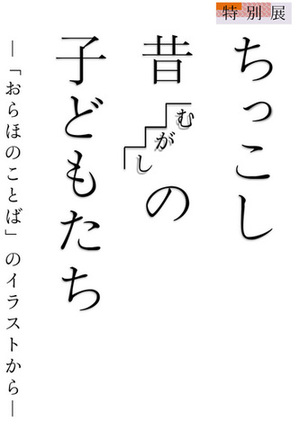 特別展
ちっこし
昔の
むがし
子どもたち
―「おらほのことば」のイラストから―